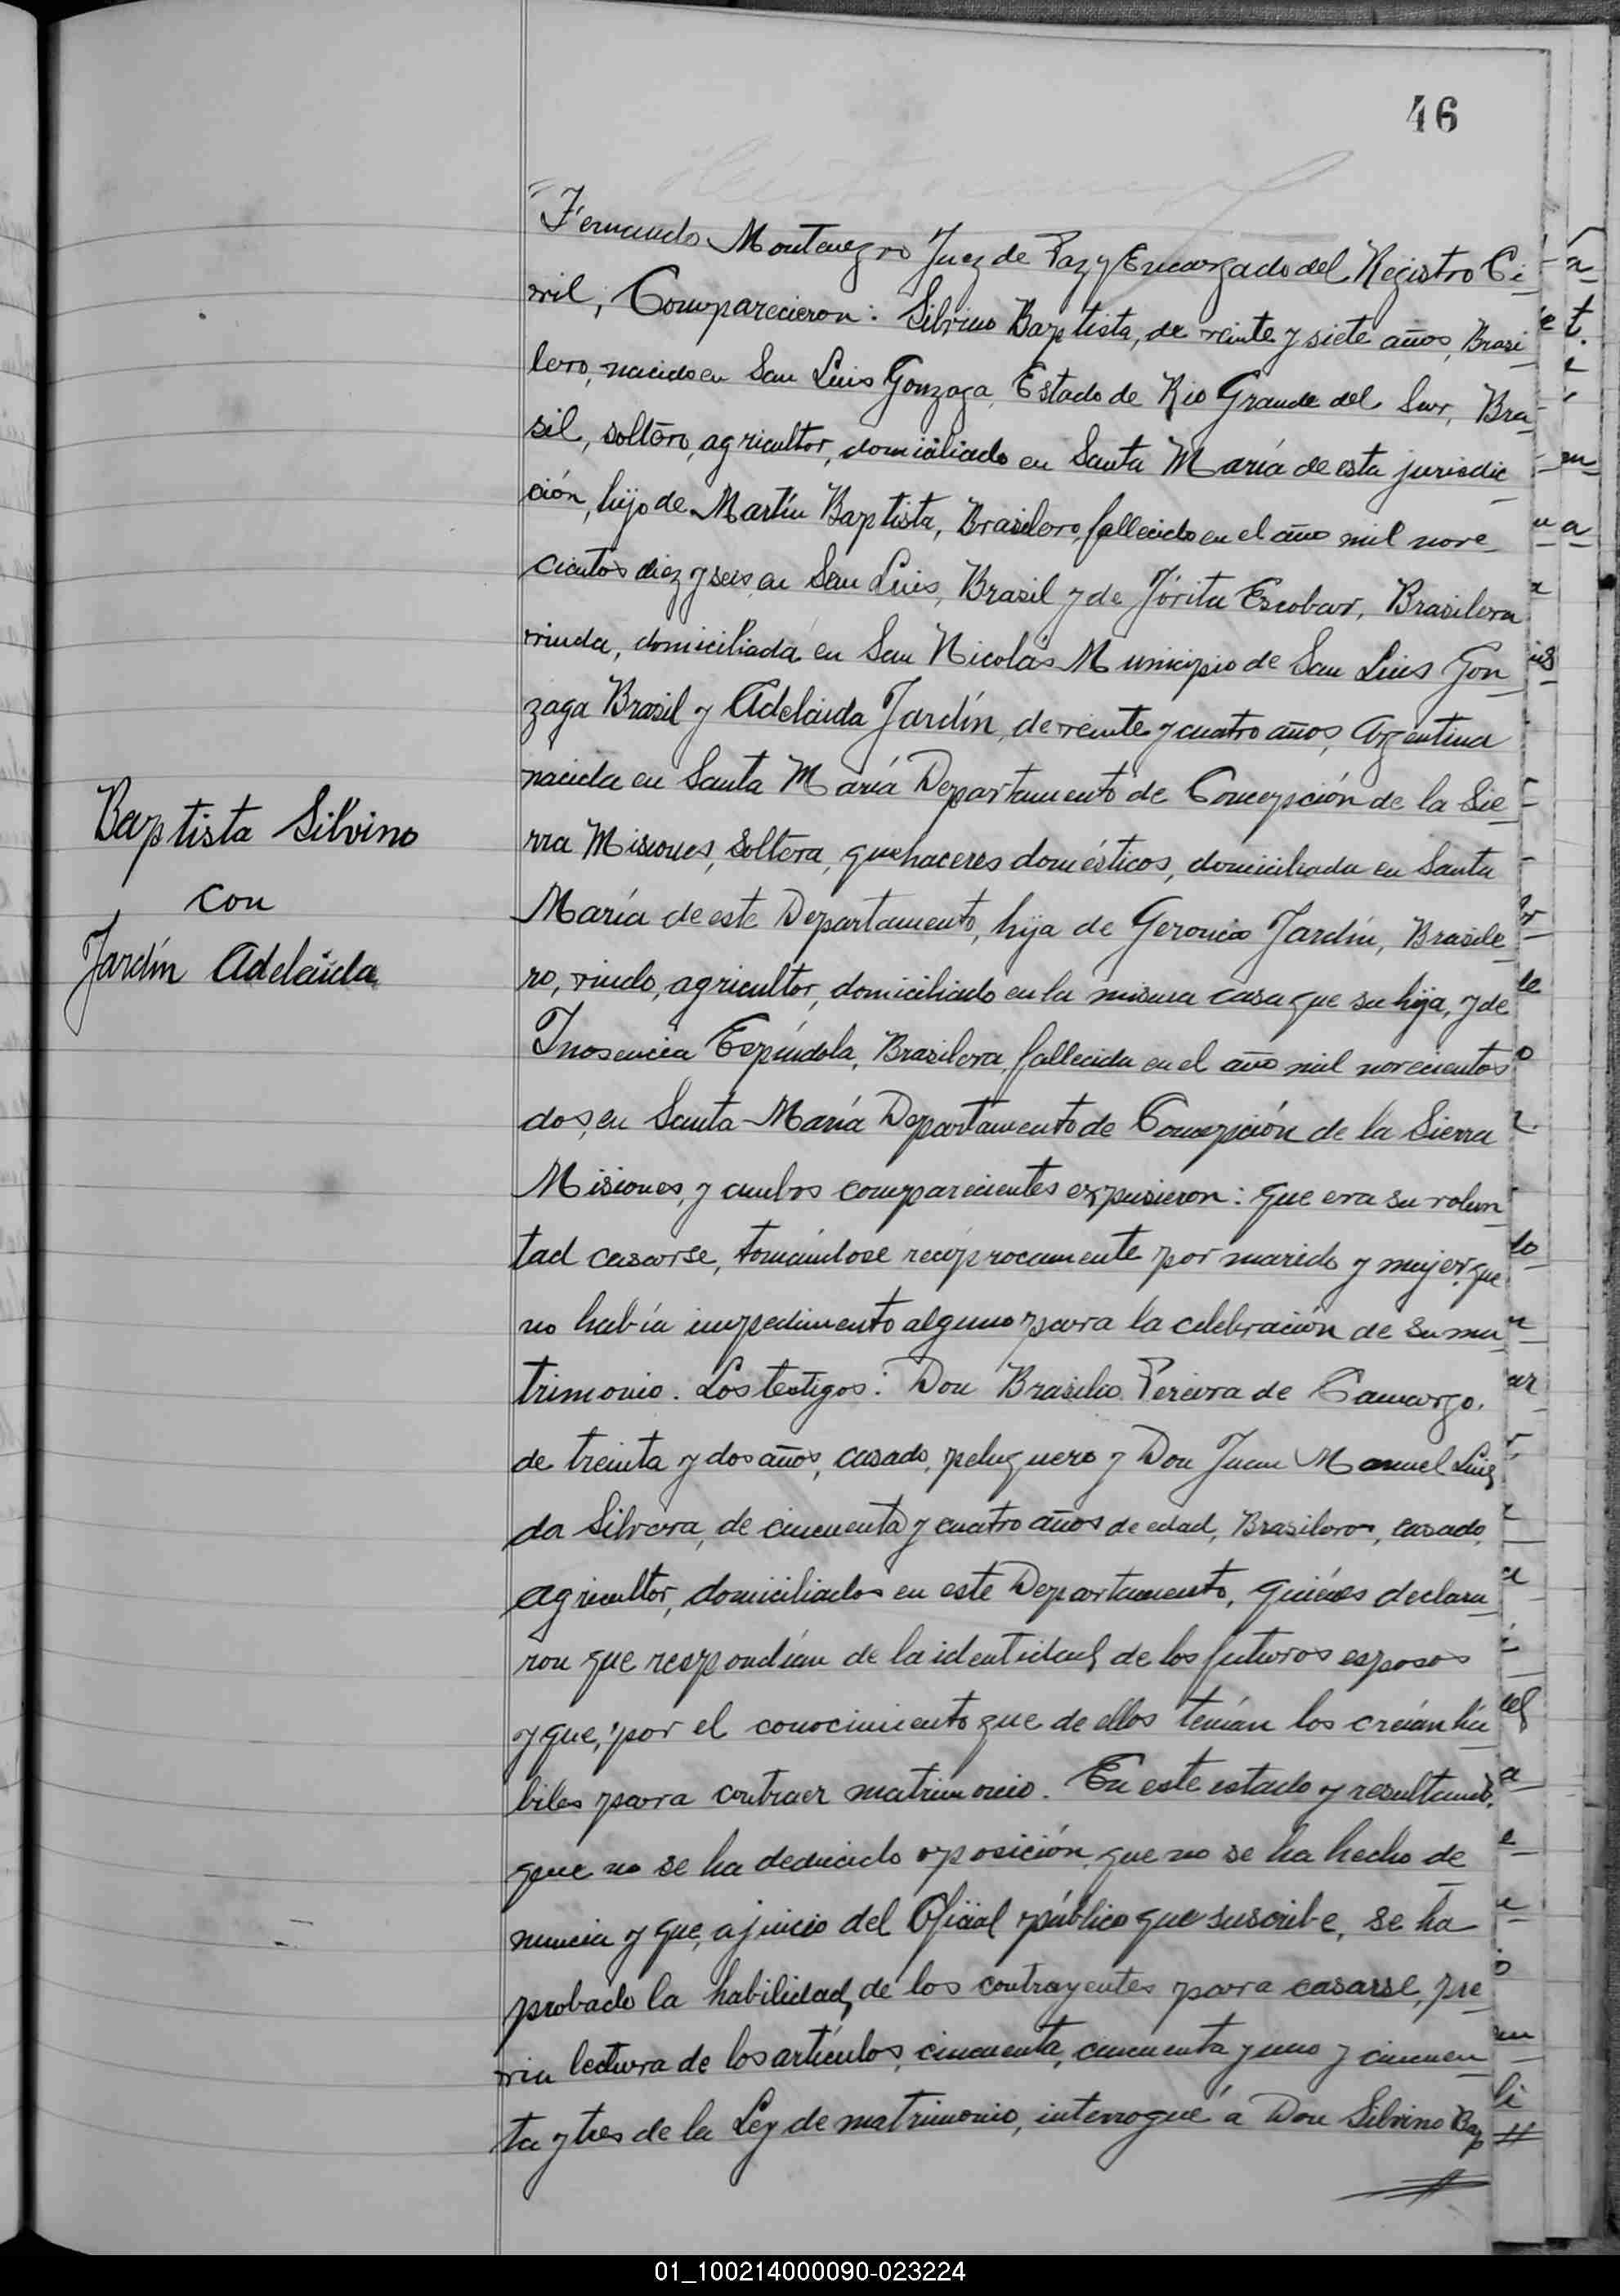 46
Fernando Montenegro Juez de Paz y Encargado del Registro Ci-
vil, Comparecieron: Silvino Baptista, de veinte y siete años, Brasi-
lero, nacido en San Luis Gonzaga, Estado de Rio Grande del Sur, Bra-
sil, soltero, agricultor, domiciliado en Santa María de esta jurisdic-
ción, hijo de Martín Baptista, Brasilero, fallecido en el año mil nove-
cientos diez y seis, en San Luis, Brasil y de Jórita Escobar, Brasilera
viuda, domiciliada en San Nicolás Municipio de San Luis Gon-
zaga Brasil y Adelaida Jardín, de veinte y cuatro años, Argentina
nacida en Santa María Departamento de Concepción de la Sie-
rra Misiones, soltera, quehaceres domésticos, domiciliada en Santa
María de este Departamento, hija de Geronio Jardín, Brasile-
ro, viudo, agricultor, domiciliado en la misma casa que su hija, y de
Inosencia Espíndola, Brasilera, fallecida en el año mil novecientos
dos, en Santa María Departamento de Concepción de la Sierra
Misiones, y ambos comparecientes expusieron: que era su volun-
tad casarse, tomándose recíprocamente por marido y mujer, que
no había impedimento alguno para la celebración de su ma-
trimonio. Los testigos: Don Brasilio Pereira de Camargo,
de treinta y dos años, casado, peluquero y Don Juan Manuel Luiz
da Silvera, de cincuenta y cuatro años de edad, Brasileros, casado,
agricultor, domiciliados en este Departamento, quiénes declara-
ron que respondían de la identidad de los futuros esposos
y que, por el conocimiento que de ellos tenían los creían há-
biles para contraer matrimonio. En este estado y resultando,
que no se ha deducido oposición, que no se ha hecho de-
nuncia y que, a juicio del Oficial público que suscribe, se ha
probado la habilidad, de los contrayentes para casarse, pre-
via lectura de los artículos, cincuenta, cincuenta y uno y cincuen-
ta y tres de la Ley de matrimonio, interrogué á Don Silvino Bap
Baptista Silvino
con
Jardín Adelaida
01_100214000090-023224